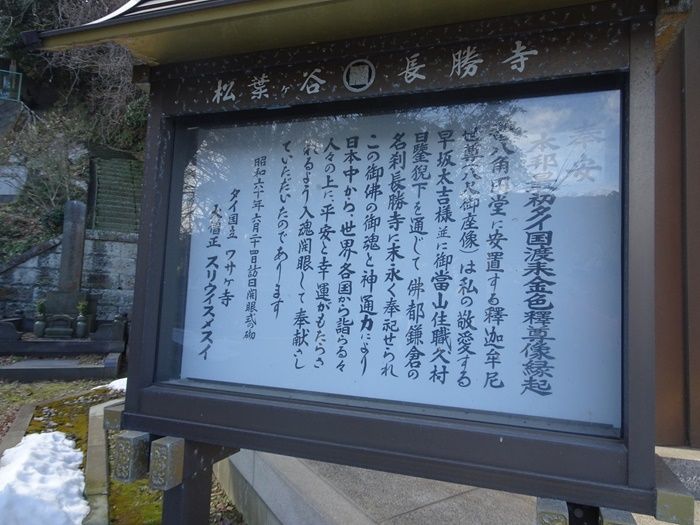 松葉ヶ谷 長勝寺
奉安
本邦最初タイ国渡来金色釋尊像縁起
八角円堂に安置する釋迦牟尼
世尊(六尺御座像)は私の敬愛する
早坂太吉様並に御當山住職久村
日鑒猊下を通じて佛都鎌倉の
名刹長勝寺に末永く奉祀せられ
この御佛の御魂と神通力により
日本中から、世界各国から詣らる々
人々の上に、平安と幸運がもたらさ
れるよう入魂開眼して奉献さし
ていただいたのであります
昭和六十年六月二十四日開眼式砌
タイ国立 ワサケ寺
大僧正 スリウイスメスイ